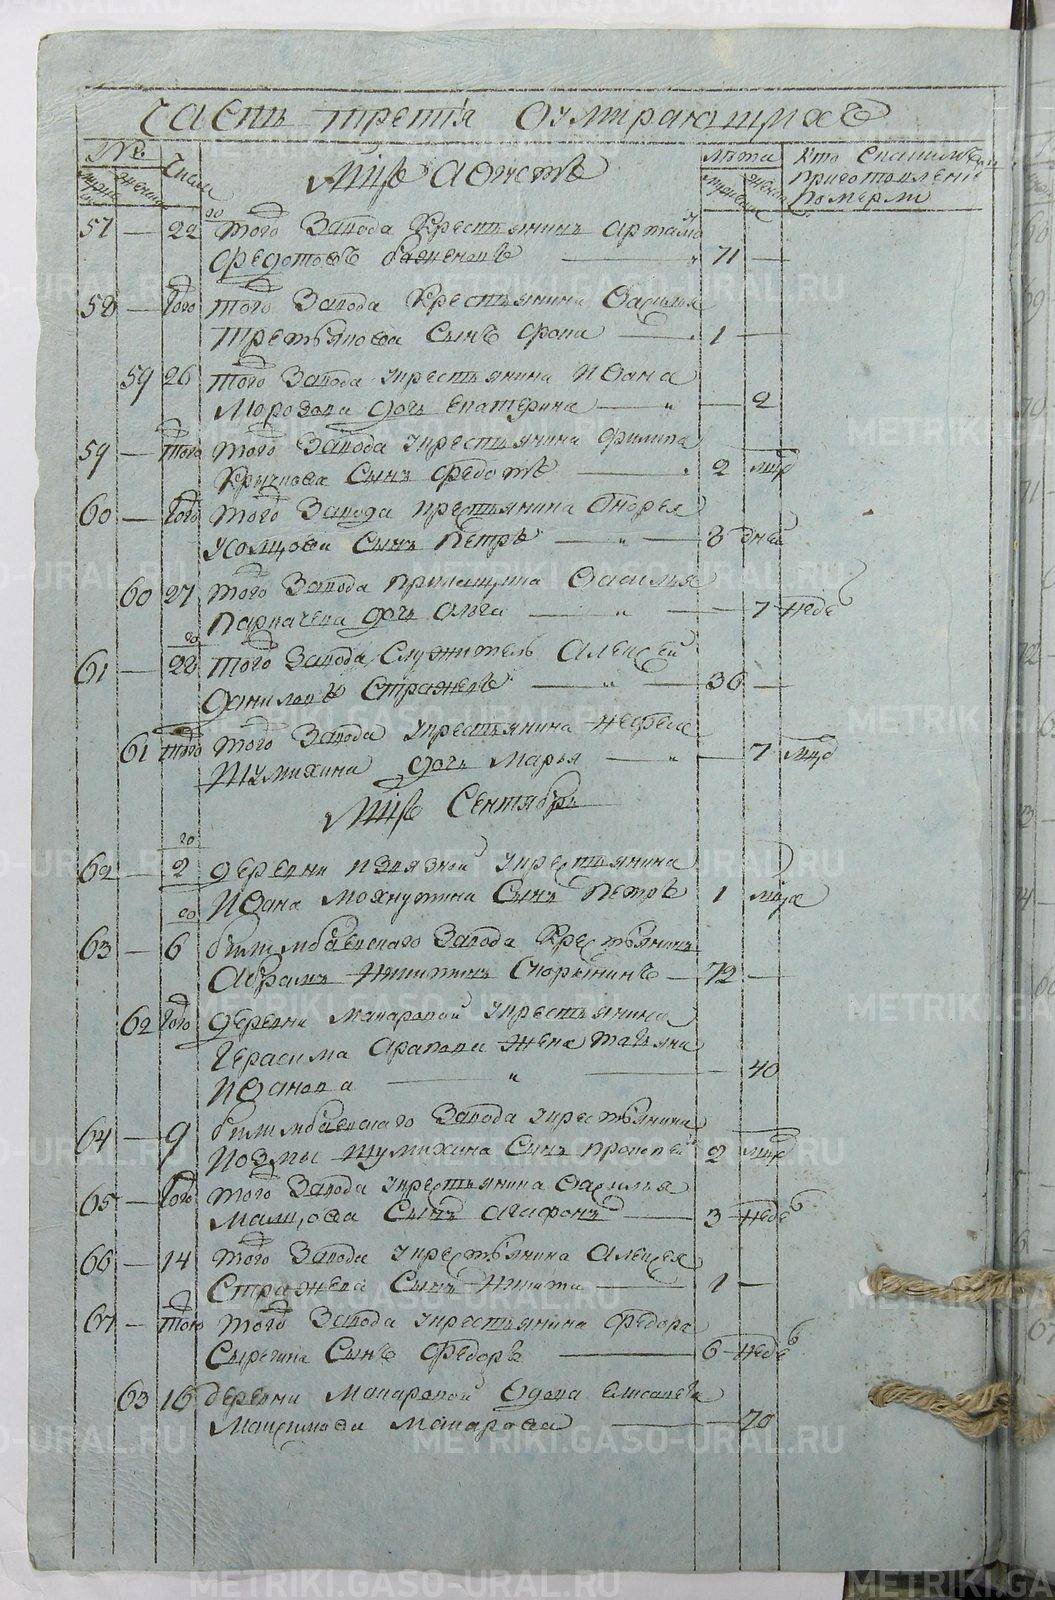 Часть третія о умирающихъ
№
мужеск женска
Числа
Мцъ Августъ
лѣта
мужеск женск
Кто снапитнѣми
приготовленіе
померли
57 — 22 того Завода Крестьянинъ Артамо
Федотовъ Баженовъ — 71 —
58 — того того Завода Крестьянина Василья
Третьякова Сынъ Фока — 1 —
59 26 того Завода крестьянина Ивана
Морозова дочь Екатерина — — 2
59 — того того Завода крестьянина Филипа
Крючкова Сынъ Федотъ — 2 мцѣ
60 — того того Завода крестьянина Андрея
Усолцова Сынъ Петръ — 8 дней
60 27 того Завода прикащика Василья
Паркачева дочь Ольга — — 7 недѣ
61 — 28 того Завода Служитель Алексей
Даниловъ Стражевъ — 36 —
61 того того Завода крестьянина Нефеда
Шумихина дочь Марья — — 7 мцѣ
Мцъ Сентябрь
62 — 2 деревни Извязной крестьянина
Ивана Махнутина Сынъ Петръ 1 мцѣа
63 — 6 билимбаевскаго Завода Крестьянинъ
Абрамъ Никитинъ Скорынинъ — 72 —
62 того деревни Макаровой крестьянина
Герасима Арапова жена татьяна
Иванова — — 40
64 — 9 билимбаевскаго Завода крестьянина
Козмы Шумихина Сынъ Прокопей 2 мцѣ
65 — того того Завода крестьянина Василья
Малцова Сынъ Агафонъ — 3 недѣ
66 — 14 того Завода крестьянина Алексея
Стражева Сынъ Никита — 1 —
67 — того того Завода крестьянина Федора
Сырегина Сынъ Федоръ — 6 недѣ
63 16 деревни Макаровой Вдова Елисавета
Максимова Макарова — — 70
METRIKI.GASO-URAL.RU